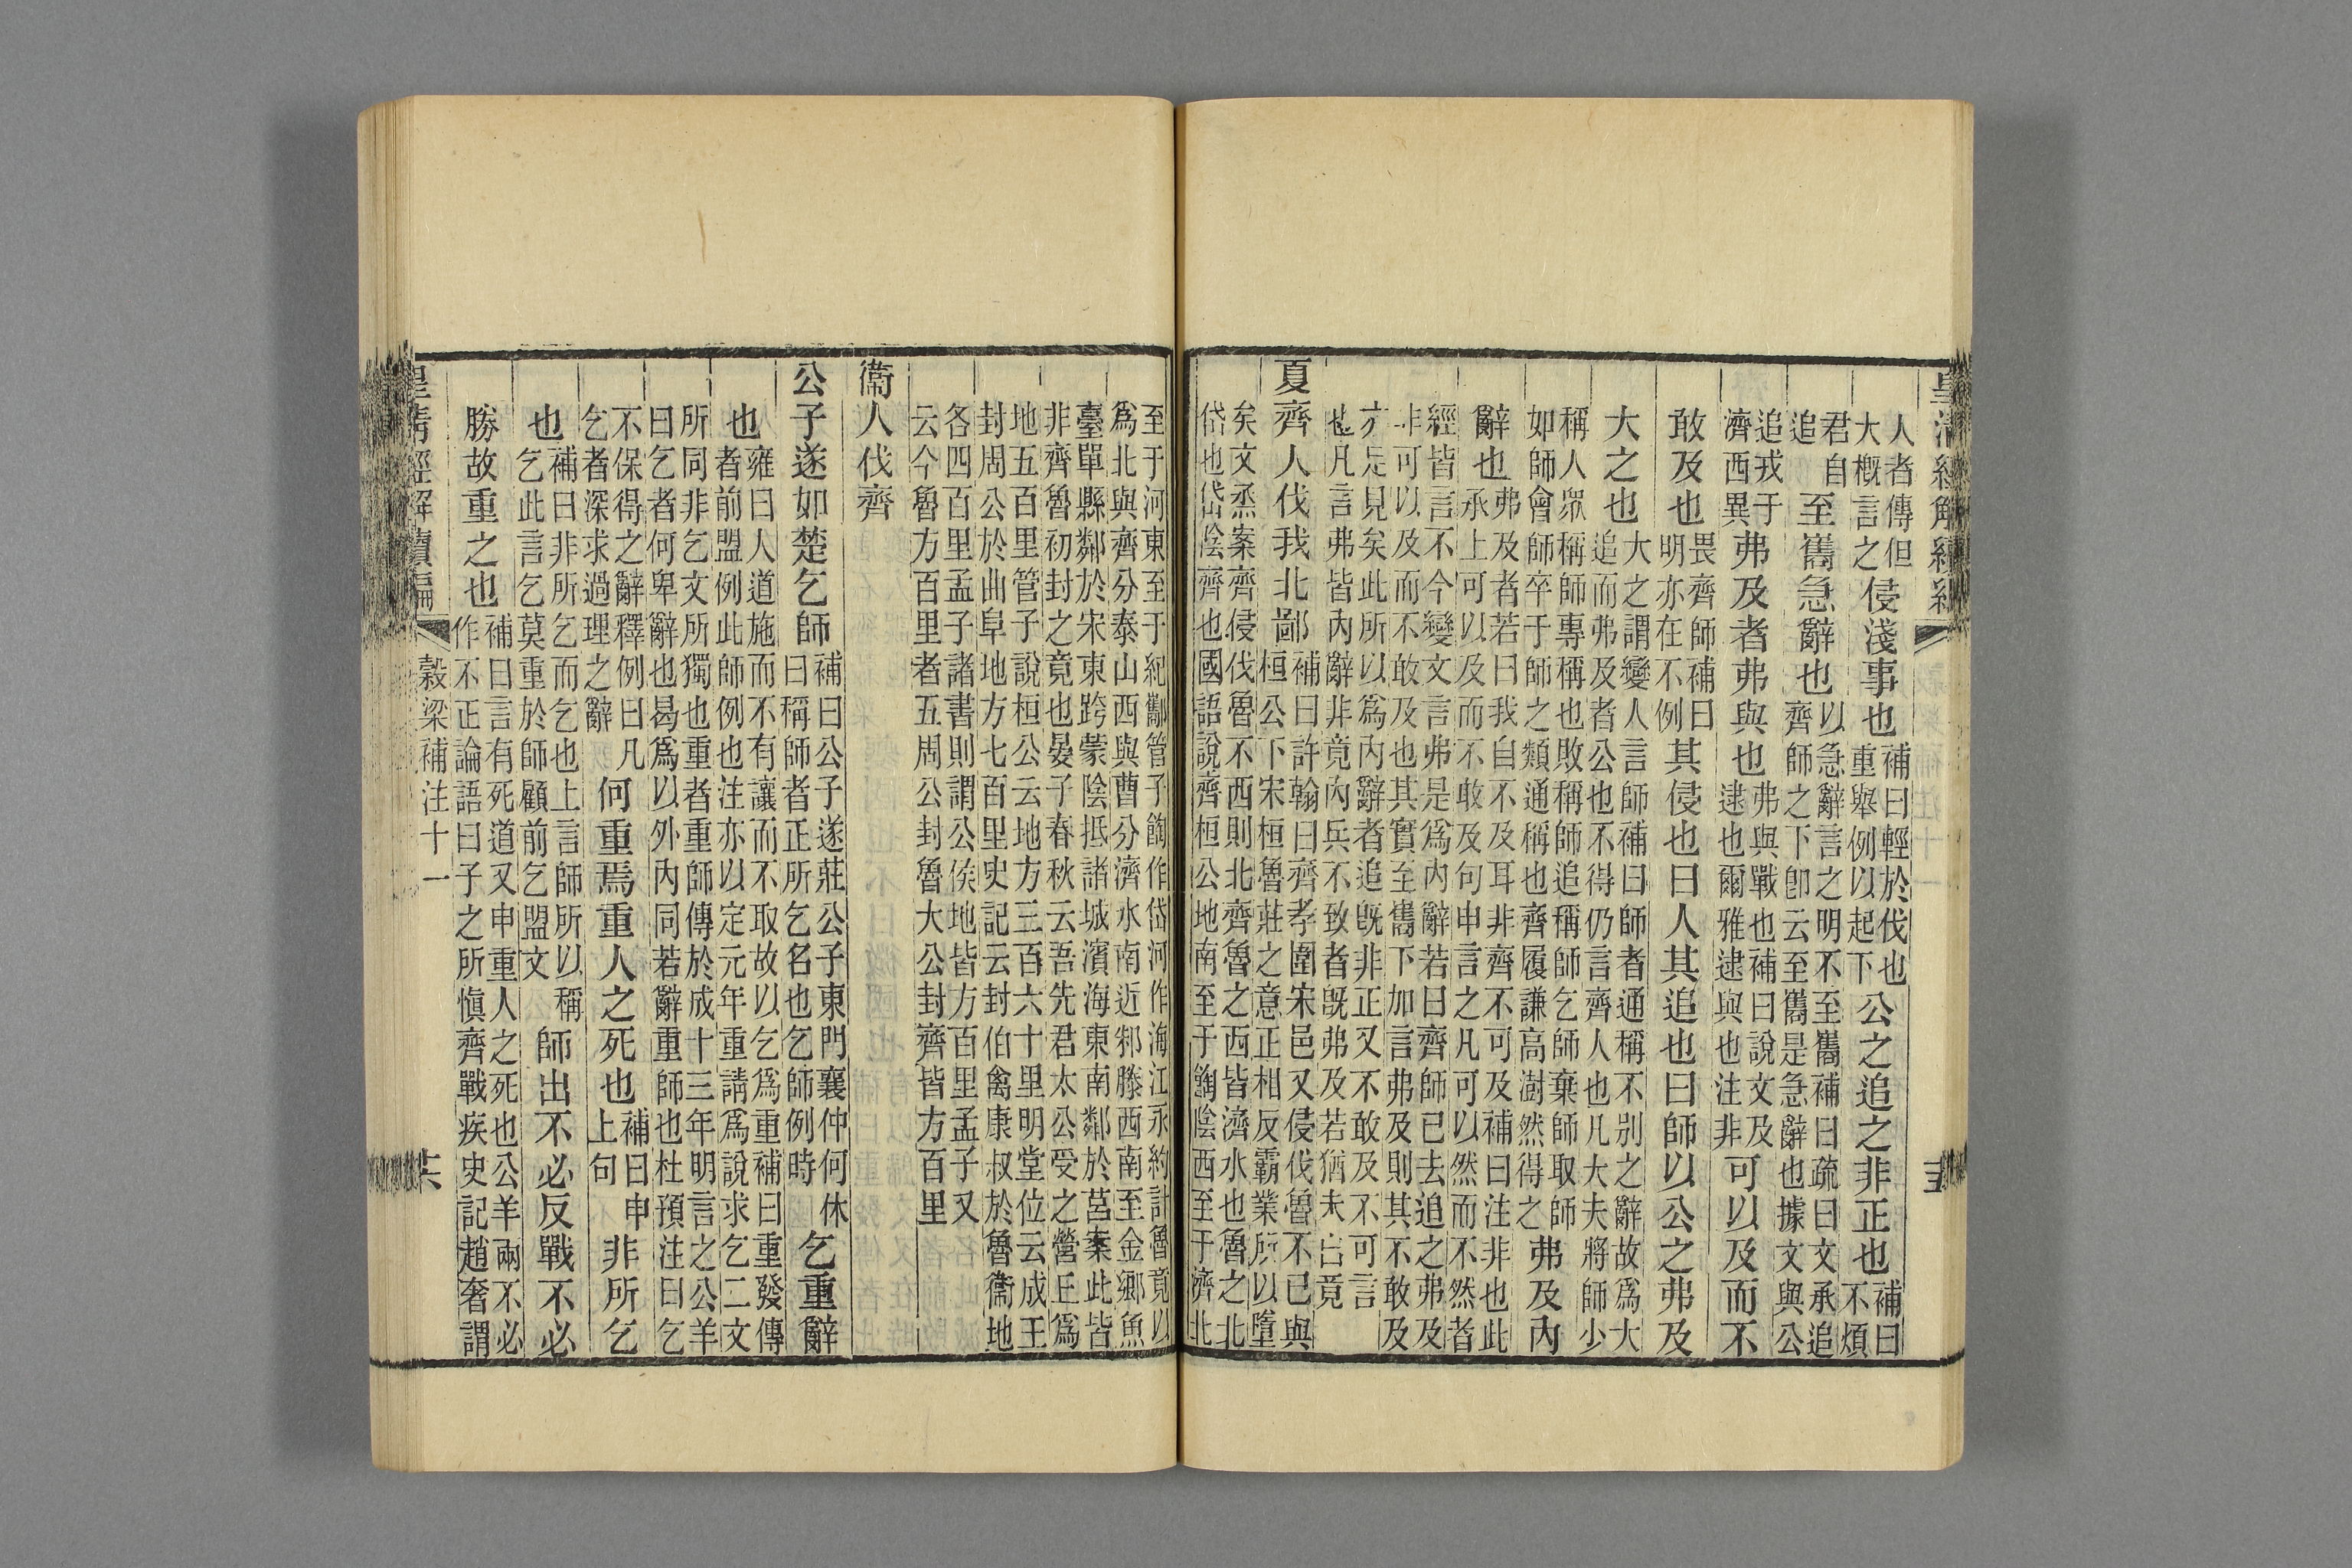 皇清經解續編
人者傳但
大概言之
侵淺事也
補曰輕於伐也
重舉例以起下
公之追之非正也
補曰
不煩
君自
追
至巂急辭也
以急辭言之明不至巂補曰疏曰文承追
齊師之下卽云至巂是急辭也據文與公
追戎于
濟西異
弗及者弗與也
弗與戰也補曰說文及
逮也爾雅逮與也注非
可以及而不
敢及也
畏齊師補曰
明亦在不例
其侵也曰人其追也曰師以公之弗及
大之也
大之謂變人言師補曰師者通稱不別之辭故爲大
追而弗及者公也不得仍言齊人也凡大夫將師少
稱人眾稱師專稱也敗稱師追稱師乞師棄師取師
如師會師卒于師之類通稱也齊履謙高澍然得之
弗及內
辭也
弗及者若曰我自不及耳非齊不可及補曰注非也此
承上可以及而不敢及句申言之凡可以然而不然者
經皆言不今變文言弗是爲內辭若曰齊師已去追之弗及
非可以及而不敢及也其實至巂下加言弗及則其不敢及
亦足見矣此所以爲內辭者追旣非正又不敢及不可言
也凡言弗皆內辭非竟內兵不致者旣弗及若猶未出竟
夏齊人伐我北鄙
補曰許翰曰齊孝圍宋邑又侵伐魯不已與
桓公下宋桓魯莊之意正相反霸業所以墮
矣文烝案齊侵伐魯不西則北齊魯之西皆濟水也魯之北
岱也岱陰齊也國語說齊桓公地南至于䤾陰西至于濟北
至于河東至于紀酅管子䤾作岱河作海江永約計魯竟以
爲北與齊分泰山西與曹分濟水南近邾滕西南至金鄉魚
臺單縣鄰於宋東跨蒙陰抵諸城濱海東南鄰於莒案此皆
非齊魯初封之竟也晏子春秋云吾先君太公受之營丘爲
地五百里管子說桓公云地方三百六十里明堂位云成王
封周公於曲阜地方七百里史記云封伯禽康叔於魯衞地
各四百里孟子諸書則謂公侯地皆方百里孟子又
云今魯方百里者五周公封魯大公封齊皆方百里
衞人伐齊
公子遂如楚乞師
補曰公子遂莊公子東門襄仲何休
曰稱師者正所乞名也乞師例時
乞重辭
也
雍曰人道施而不有讓而不取故以乞爲重補曰重發傳
者前盟例此師例也注亦以定元年重請爲說求乞二文
所同非乞文所獨也重者重師傳於成十三年明言之公羊
曰乞者何卑辭也曷爲以外內同若辭重師也杜預注曰乞
不保得之辭釋例曰凡
乞者深求過理之辭
何重焉重人之死也
補曰申
上句
非所乞
也
補曰非所乞而乞也上言師所以稱
乞此言乞莫重於師顧前乞盟文
師出不必反戰不必
勝故重之也
補曰言有死道又申重人之死也公羊兩不必
作不正論語曰子之所愼齊戰疾史記趙奢謂
皇清經解續編
穀梁補注十一